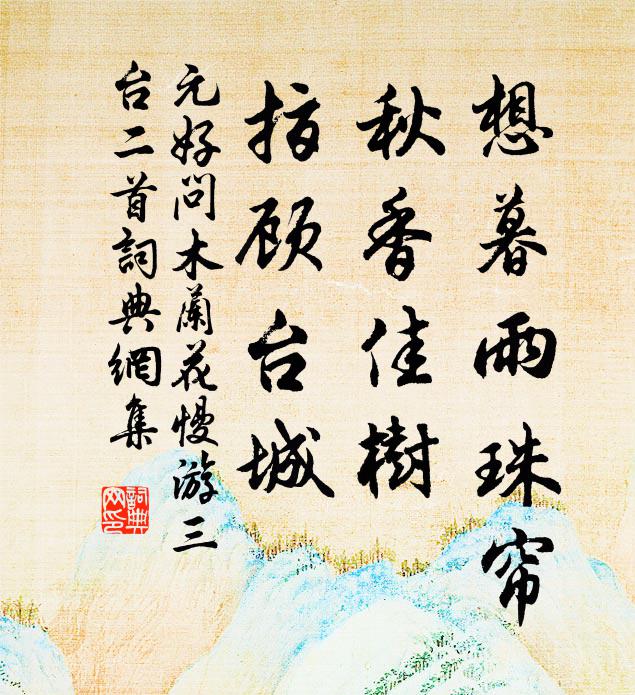 想暮雨珠帘
秋香佳樹
指顾台城
元好問木蘭花慢游三
台二首詞典網集
詞典
网印